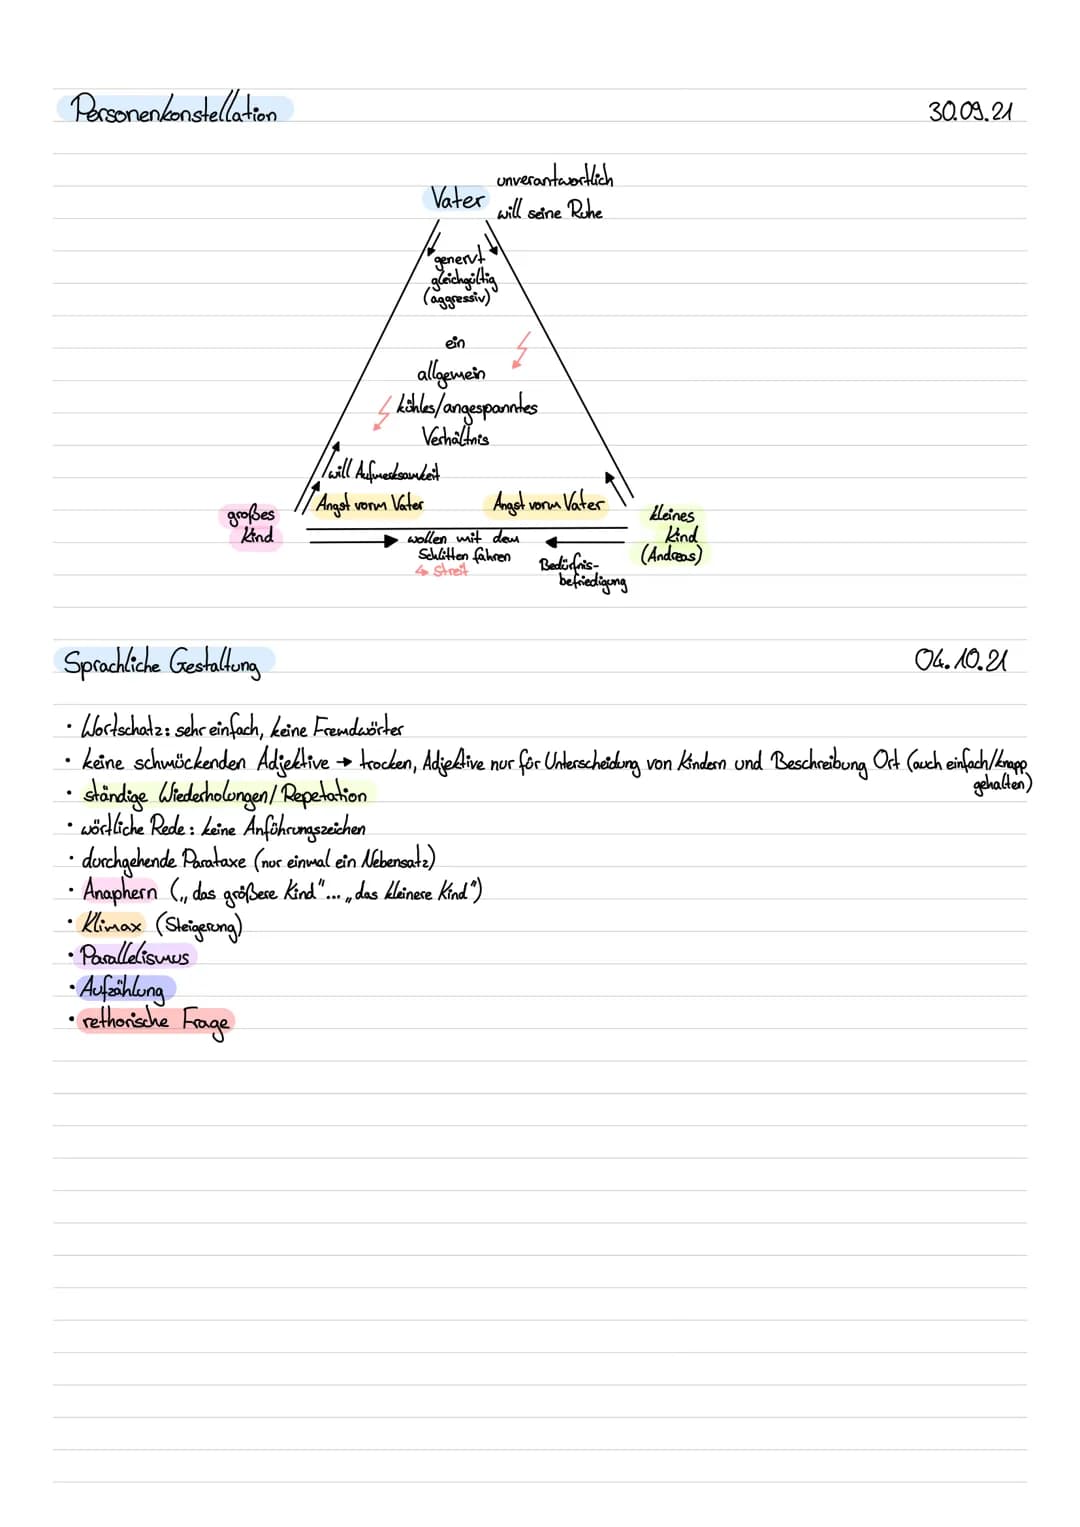 Personenkonstellation 30.09.21
unverantwortlich
Vater
will seine Ruhe
genervt
gleichgültig
(aggressiv)
ein
allgemein
kühles/angespanntes
Verhältnis
will Aufmerksamkeit
Angst vorm Vater Angst vorm Vater
großes
Kind
kleines
Kind
(Andreas)
wollen mit dem
Schlitten fahren
↳ Streit
Bedürfnis-
befriedigung
Sprachliche Gestaltung 04.10.21
· Wortschatz: sehr einfach, keine Fremdwörter
· keine schmückenden Adjektive → trocken, Adjektive nur für Unterscheidung von Kindern und Beschreibung Ort (auch einfach/knapp
gehalten)
· ständige Wiederholungen/Repetation
· wörtliche Rede: keine Anführungszeichen
· durchgehende Parataxe (nur einmal ein Nebensatz)
· Anaphern („das größere Kind"... „das kleinere Kind")
· Klimax (Steigerung)
· Parallelismus
· Aufzählung
· rethorische Frage